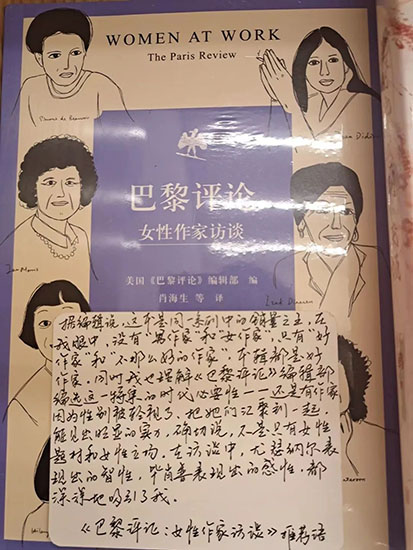 WOMEN AT WORK
The Paris Review
Simone de Beauvoir
Joan Didion
巴黎评论
女性作家访谈
美国《巴黎评论》编辑部 编
肖海生 等 译
Jan Morris
Isak Dinesen
据编辑说,这本是同系列中的销量之王,在
我眼中,没有“男作家”和“女作家”,只有“好
作家”和“不那么好的作家”,本辑都是好
作家。同时我也理解《巴黎评论》编辑部
编选这一特辑的时代必要性——还是有作家
因为性别被轻视了,把她们汇聚到一起,
能见出旺盛的实力,确切说,不是只有女性
题材和女性立场。在访谈中,尤瑟纳尔表
现出的智性,毕肖普表现出的感性,都
深深地吸引了我。
《巴黎评论:女性作家访谈》推荐语